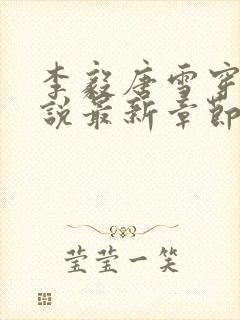 李毅唐雪穿
说最新章節
莹莹一笑